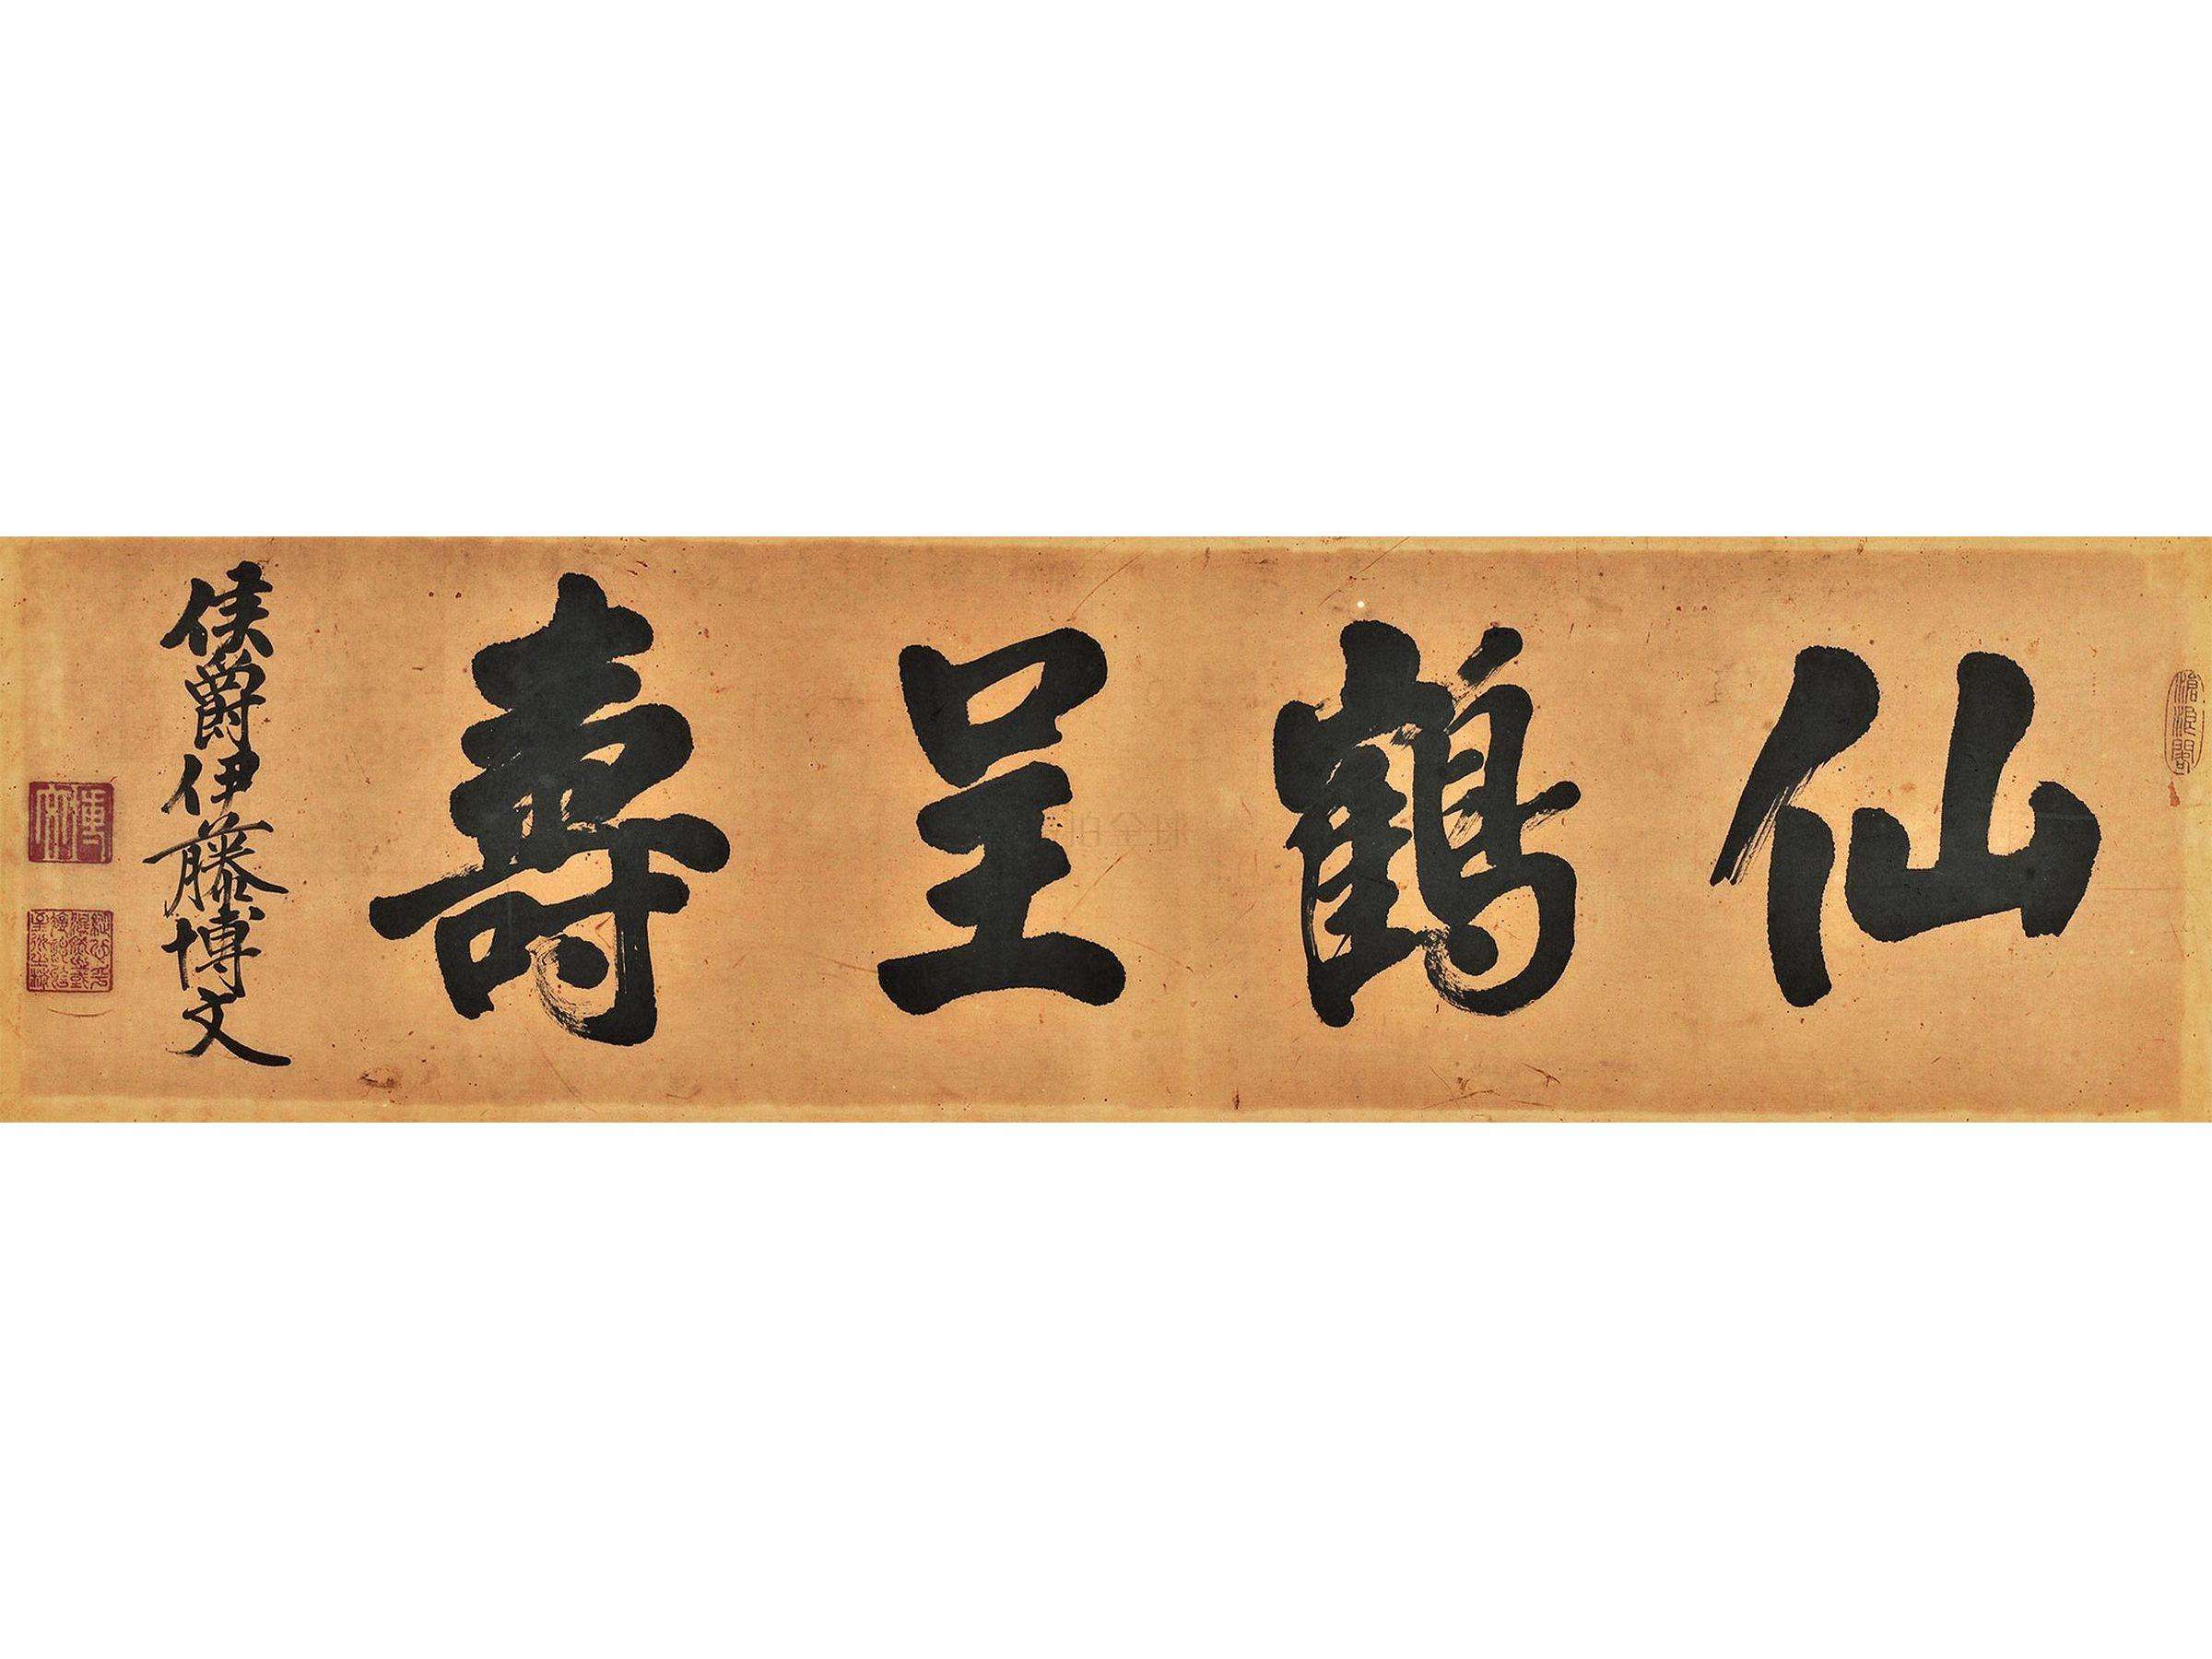 滄浪閣
仙鶴呈壽
侯爵伊藤博文
博文